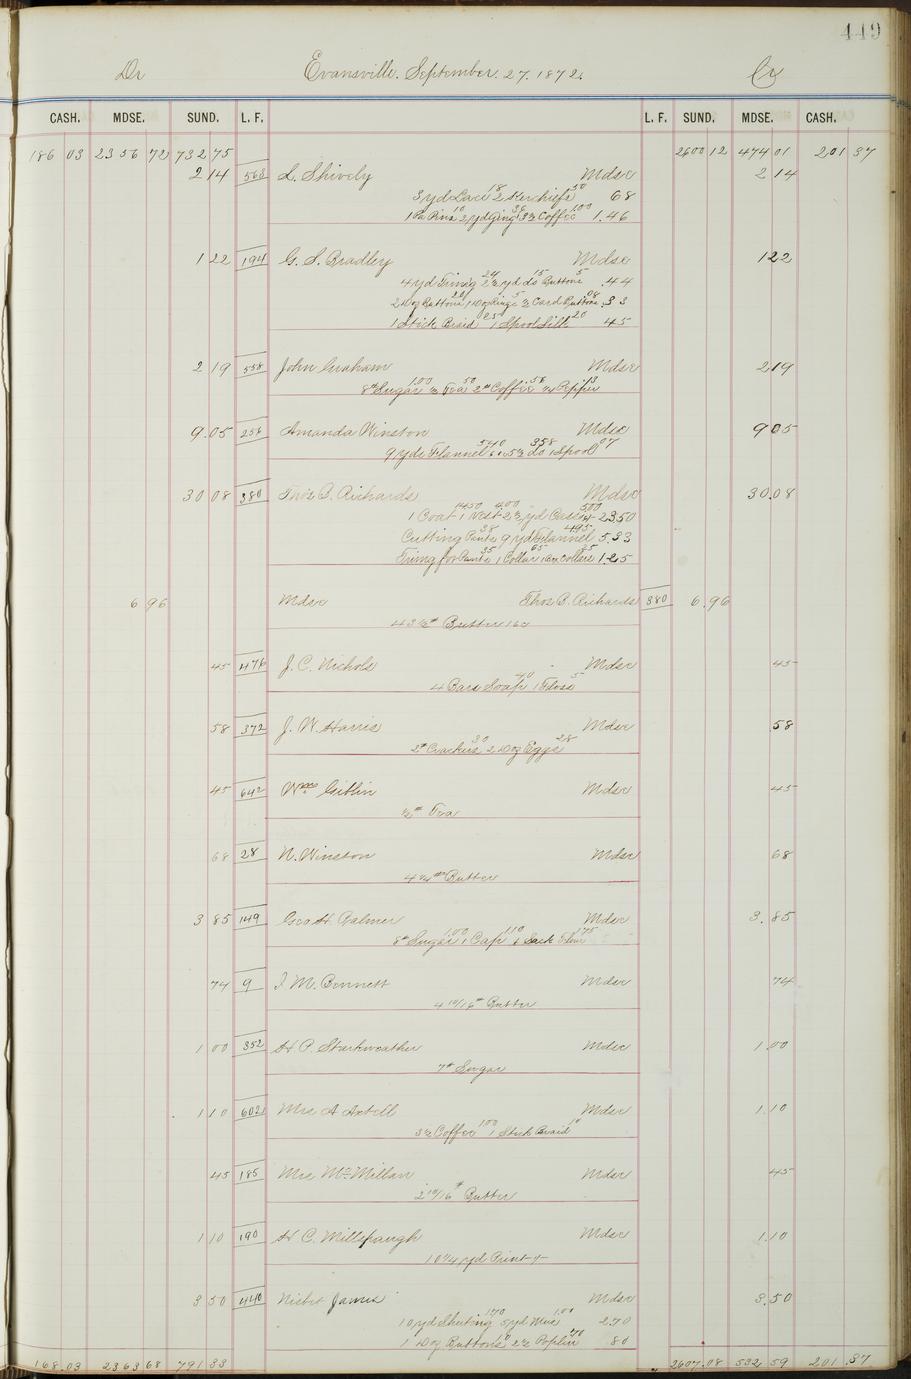 449
Dr Evansville. September. 27. 1872. Cr
CASH. MDSE. SUND. L. F. L. F. SUND. MDSE. CASH.
186 03 2356 72 732 75 2600 12 474 01 201 37
2 14 568 L. Shively Mdse 2 14
3 yd Lace 18 2 Kerchiefs 50 68
1 Pa Pins 10 2 yd Ging 36 3½ Coffee 1.00 1.46
1 22 194 G. S. Bradley Mdse 1 22
4 yd Trimg 24 2½ yd do 15 Buttons 5 .44
2 Doz Buttons 20 1 Doz Rings 5 ½ Card Buttons 08 .33
1 Stick Braid 25 1 Spool Silk 20 45
2 19 558 John Graham Mdse 2 19
8# Sugar 1.00 ½ Tea 50 2# Coffee 56 ¼ Pepper 13
9.05 256 Amanda Winston Mdse 9 05
9 yds Flannel 540 5½ do 358 1 Spool 07
30 08 380 Thos B. Richards Mdse 30.08
1 Coat 1450 1 Vest 400 2½ yd Cass 500 23.50
Cutting Pants 38 9 yd Flannel 495 5.33
Trimg for Pants 35 1 Collar 65 1 Box Collars 25 1.25
6 96 Mdse Thos B. Richards 380 6.96
43½# Butter 16c
45 476 J. C. Nichols Mdse 45
4 Bars Soap 40 1 Floss 5
58 372 J. W. Harris Mdse 58
2# Crackers 30 2 Doz Eggs 28
45 642 Wm Giblin Mdse 45
½# Tea
68 28 N. Winston Mdse 68
4¼# Butter
3 85 149 Geo H. Palmer Mdse 3.85
8# Sugar 1.00 1 Cap 110 1 Sack Flour 175
74 9 I M. Bennett Mdse 74
4 10/16# Butter
1 00 352 H P. Starkweather Mdse 1.00
7# Sugar
1 10 602 Mrs A Axtell Mdse 1.10
3½ Coffee 100 1 Stick Braid 10
45 185 Mrs McMillan Mdse 45
2 12/16# Butter
1 10 190 H C. Millspaugh Mdse 1.10
10¼ yd Print
3 50 440 Nisbet James Mdse 3.50
10 yd Sheeting 170 5 yd Mus 1.00 2.70
1 Doz Buttons 10 2½ Poplin 70 80
168.03 2363 68 791 33 2607.08 532 59 201.37